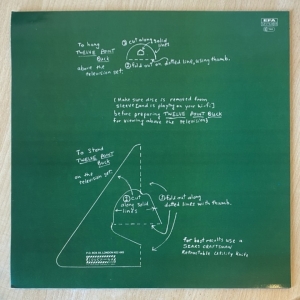 EFA
To hang
TWELVE POINT
BUCK
above the
television set:
① cut along solid
line
② fold out on dotted line, using thumb.
[Make sure disc is removed from
sleeve (and is playing on your hi-fi)
before preparing TWELVE POINT BUCK
for viewing above the television]
To stand
TWELVE POINT
BUCK
on the
television set:
① cut
along solid
lines
② fold out along
dotted lines with thumb.
for best results use a
SEARS CRAFTSMAN
Retractable Utility Knife